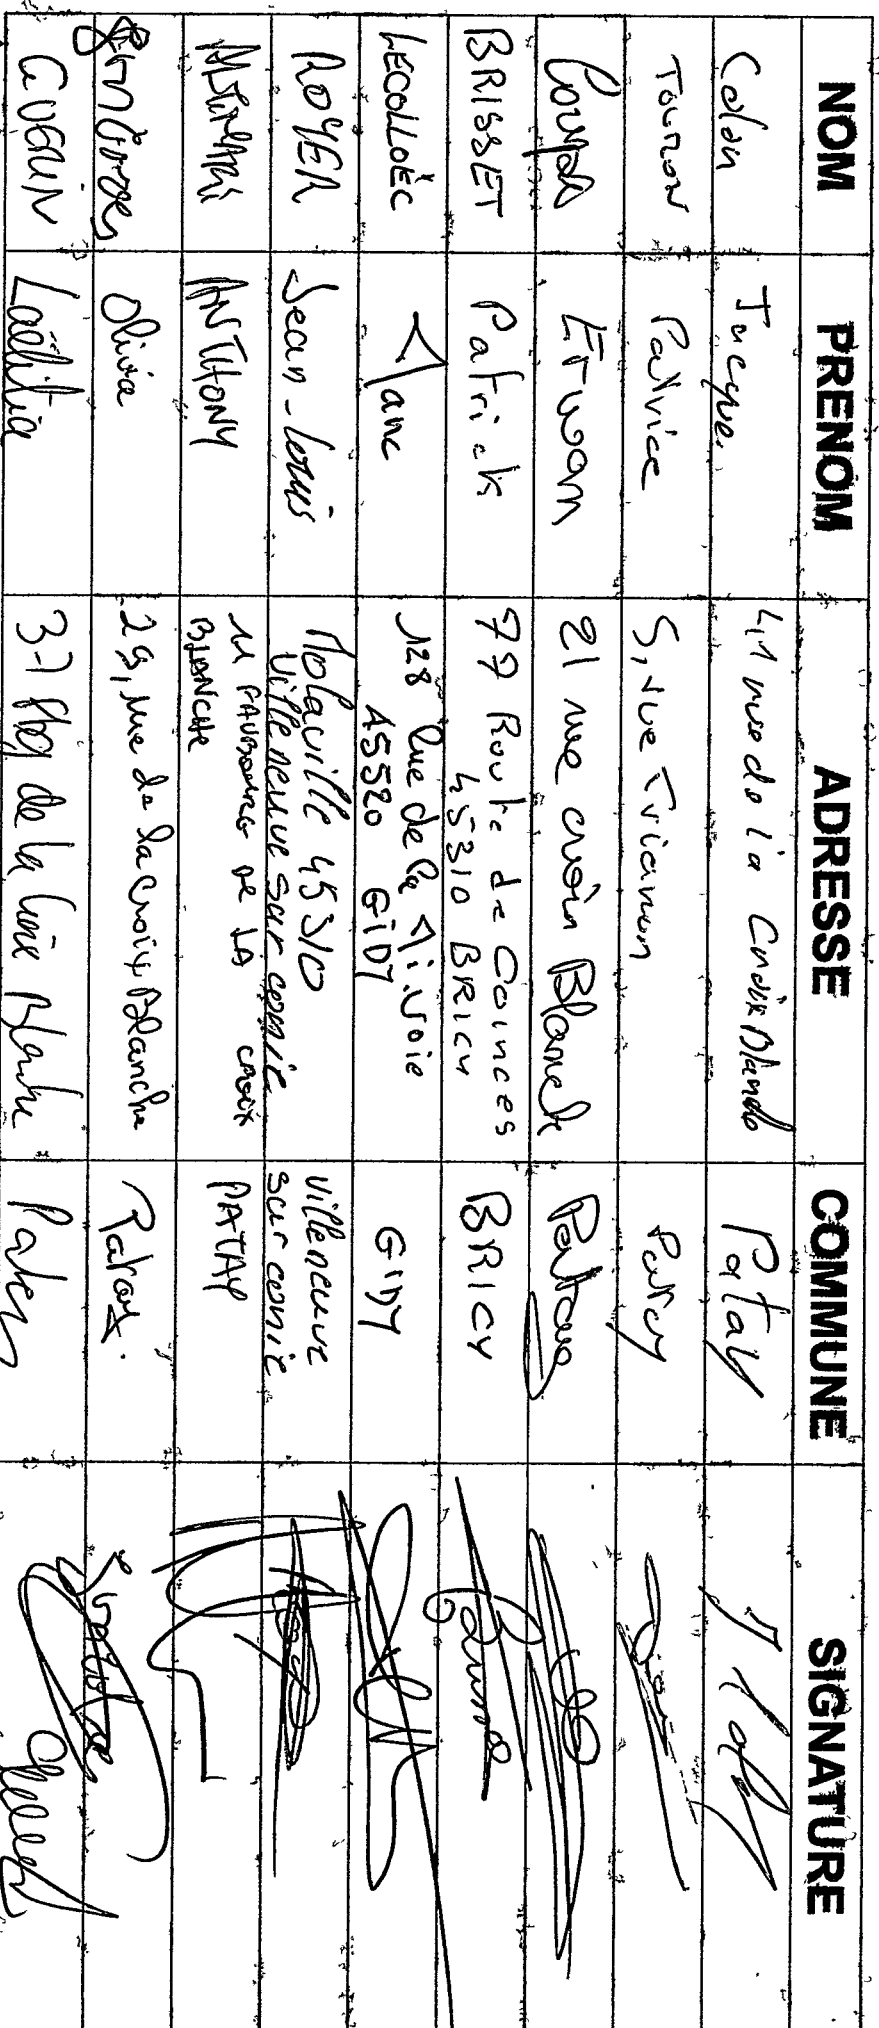 NOM PRENOM ADRESSE COMMUNE SIGNATURE
Colin Jacques 41 rue de la Croix Blanche Patay
TOURON Patrice 5, rue Trianon Patay
Erwan 21 rue croix Blanche Patay
BRISSET Patrick 77 Route de Coinces
45310 BRICY BRICY
LECOLLOËC Yanc 128 Rue de la Mi-Voie
45520 GIDY GIDY
ROYER Jean-Louis Molaville 45310
Villeneuve sur conie Villeneuve
sur conie
ANTHONY 11 FAUBOURG DE LA CROIX
BLANCHE PATAY
Olivia 29, rue de la Croix Blanche Patay.
GUERIN Laetitia 37 Fbg de la Croix Blanche Patay